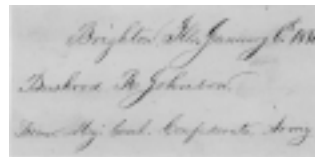 Brighton Ills January 6th
Bushrod R Johnson
Maj Genl. Confederate Army